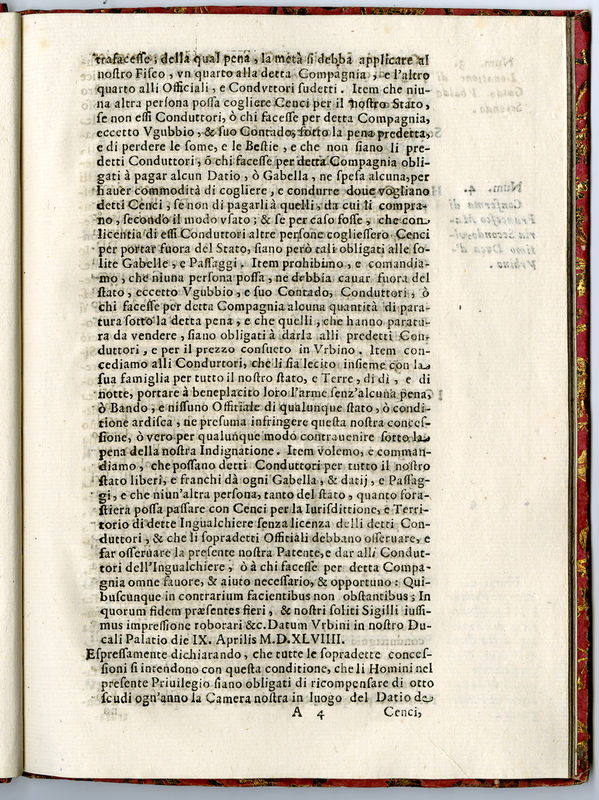 trafacesse; della qual pena, la metà si debba applicare al
nostro Fisco, vn quarto alla detta Compagnia, e l'altro
quarto alli Officiali, e Condvttori sudetti. Item che niu-
na altra persona possa cogliere Cenci per il nostro Stato,
se non essi Conduttori, ò chi facesse per detta Compagnia,
eccetto Vgubbio, & suo Contado, sotto la pena predetta,
e di perdere le some, e le Bestie, e che non siano li pre-
detti Conduttori, ò chi facesse per detta Compagnia obli-
gati à pagar alcun Datio, ò Gabella, ne spesa alcuna, per
hauer commodità di cogliere, e condurre doue vogliano
detti Cenci, se non di pagarli à quelli, da cui li compra-
no, secondo il modo vsato; & se per caso fosse, che con
licentia di essi Conduttori altre persone cogliessero Cenci
per portar fuora del Stato, siano però tali obligati alle so-
lite Gabelle, e Passaggi. Item prohibimo, e comandia-
mo, che niuna persona possa, ne debbia cauar fuora del
stato, eccetto Vgubbio, e suo Contado, Conduttori, ò
chi facesse per detta Compagnia alcuna quantità di para-
tura sotto la detta pena, e che quelli, che hanno paratu-
ra da vendere, siano obligati à darla alli predetti Con-
duttori, e per il prezzo consueto in Vrbino. Item con-
cediamo alli Conduttori, che li sia lecito insieme con la
sua famiglia per tutto il nostro stato, e Terre, di dì, e di
notte, portare à beneplacito loro l'arme senz'alcuna pena,
ò Bando, e nissuno Officiale di qualunque stato, ò condi-
tione ardisca, ne presuma infringere questa nostra conces-
sione, ò vero per qualunque modo contrauenire sotto la
pena della nostra Indignatione. Item volemo, e comman-
diamo, che possano detti Conduttori per tutto il nostro
stato liberi, e franchi dà ogni Gabella, & datij, e Passag-
gi, e che niun'altra persona, tanto del stato, quanto fora-
stiera possa passare con Cenci per la Iurisdittione, e Terri-
torio di dette Ingualchiere senza licenza delli detti Con-
duttori, & che li sopradetti Offitiali debbano osseruare, e
far osseruare la presente nostra Patente, e dar alli Condut-
tori dell'Ingualchiere, ò à chi facesse per detta Compa-
gnia omne fauore, & aiuto necessario, & opportuno: Qui-
buscunque in contrarium facientibus non obstantibus; In
quorum fidem præsentes fieri, & nostri soliti Sigilli iussi-
mus impressione roborari &c. Datum Vrbini in nostro Du-
cali Palatio die IX. Aprilis M.D.XLVIIII.
Espressamente dichiarando, che tutte le sopradette conces-
sioni si intendono con questa conditione, che li Homini nel
presente Priuilegio siano obligati di ricompensare di otto
scudi ogn'anno la Camera nostra in luogo del Datio de
A 4 Cenci,